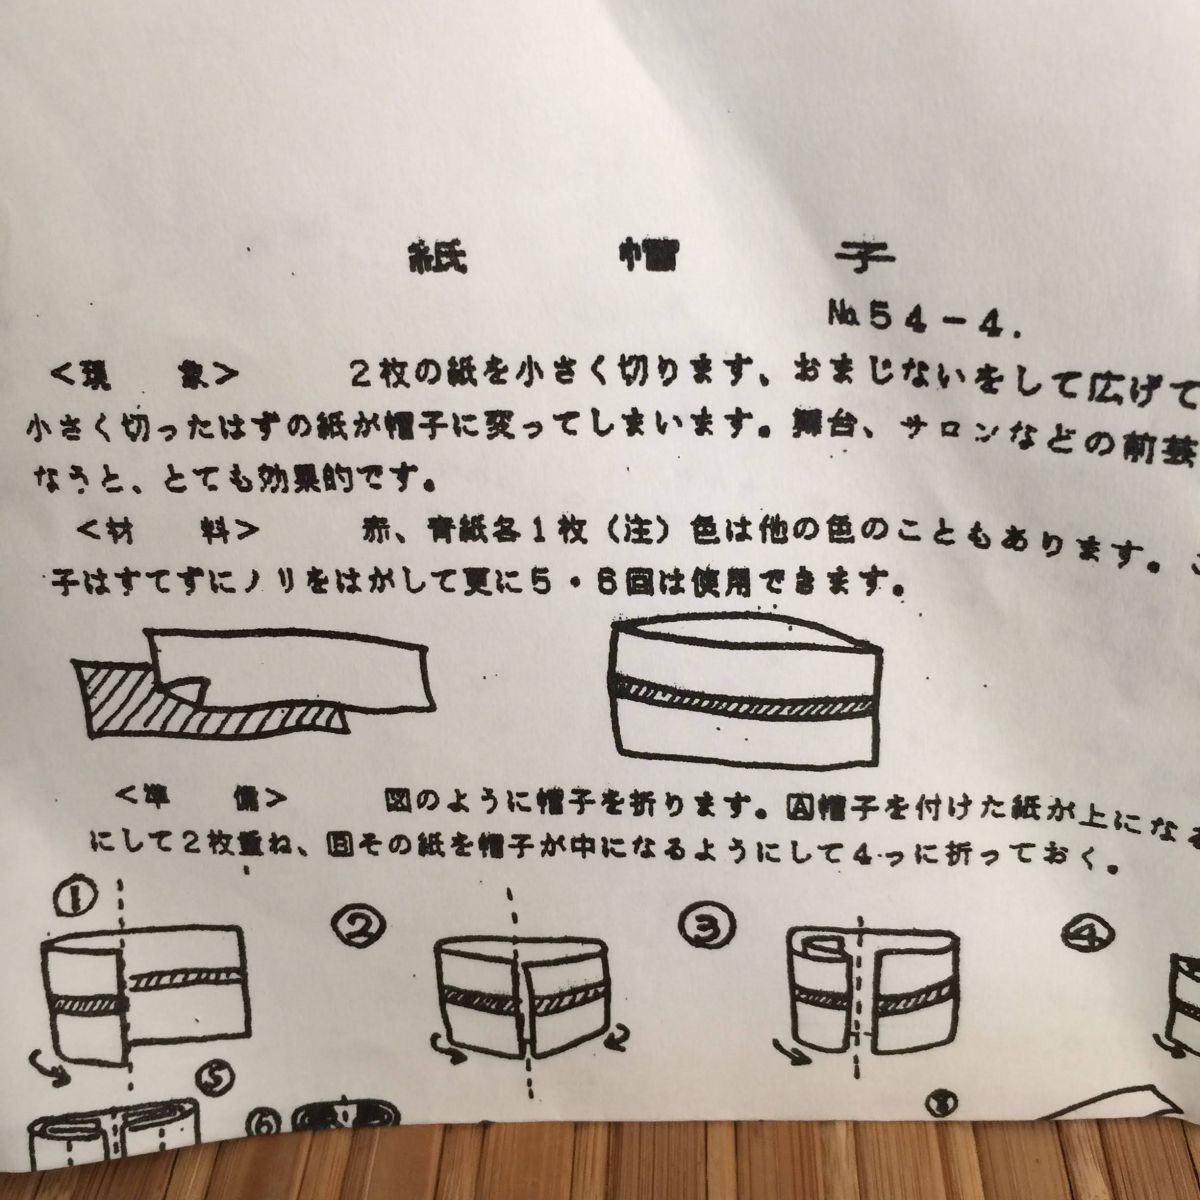 紙 帽 子
No.54-4.
<現 象> 2枚の紙を小さく切ります、おまじないをして広げて
小さく切ったはずの紙が帽子に変ってしまいます。舞台、サロンなどの前芸
なうと、とても効果的です。
<材 料> 赤、青紙各1枚(注)色は他の色のこともあります。こ
子はすてずにノリをはがして更に5・6回は使用できます。
<準 備> 図のように帽子を折ります。Ⓐ帽子を付けた紙が上になる
にして2枚重ね、Ⓑその紙を帽子が中になるようにして4つに折っておく。
① ② ③ ④
⑤ ⑥ ⑧